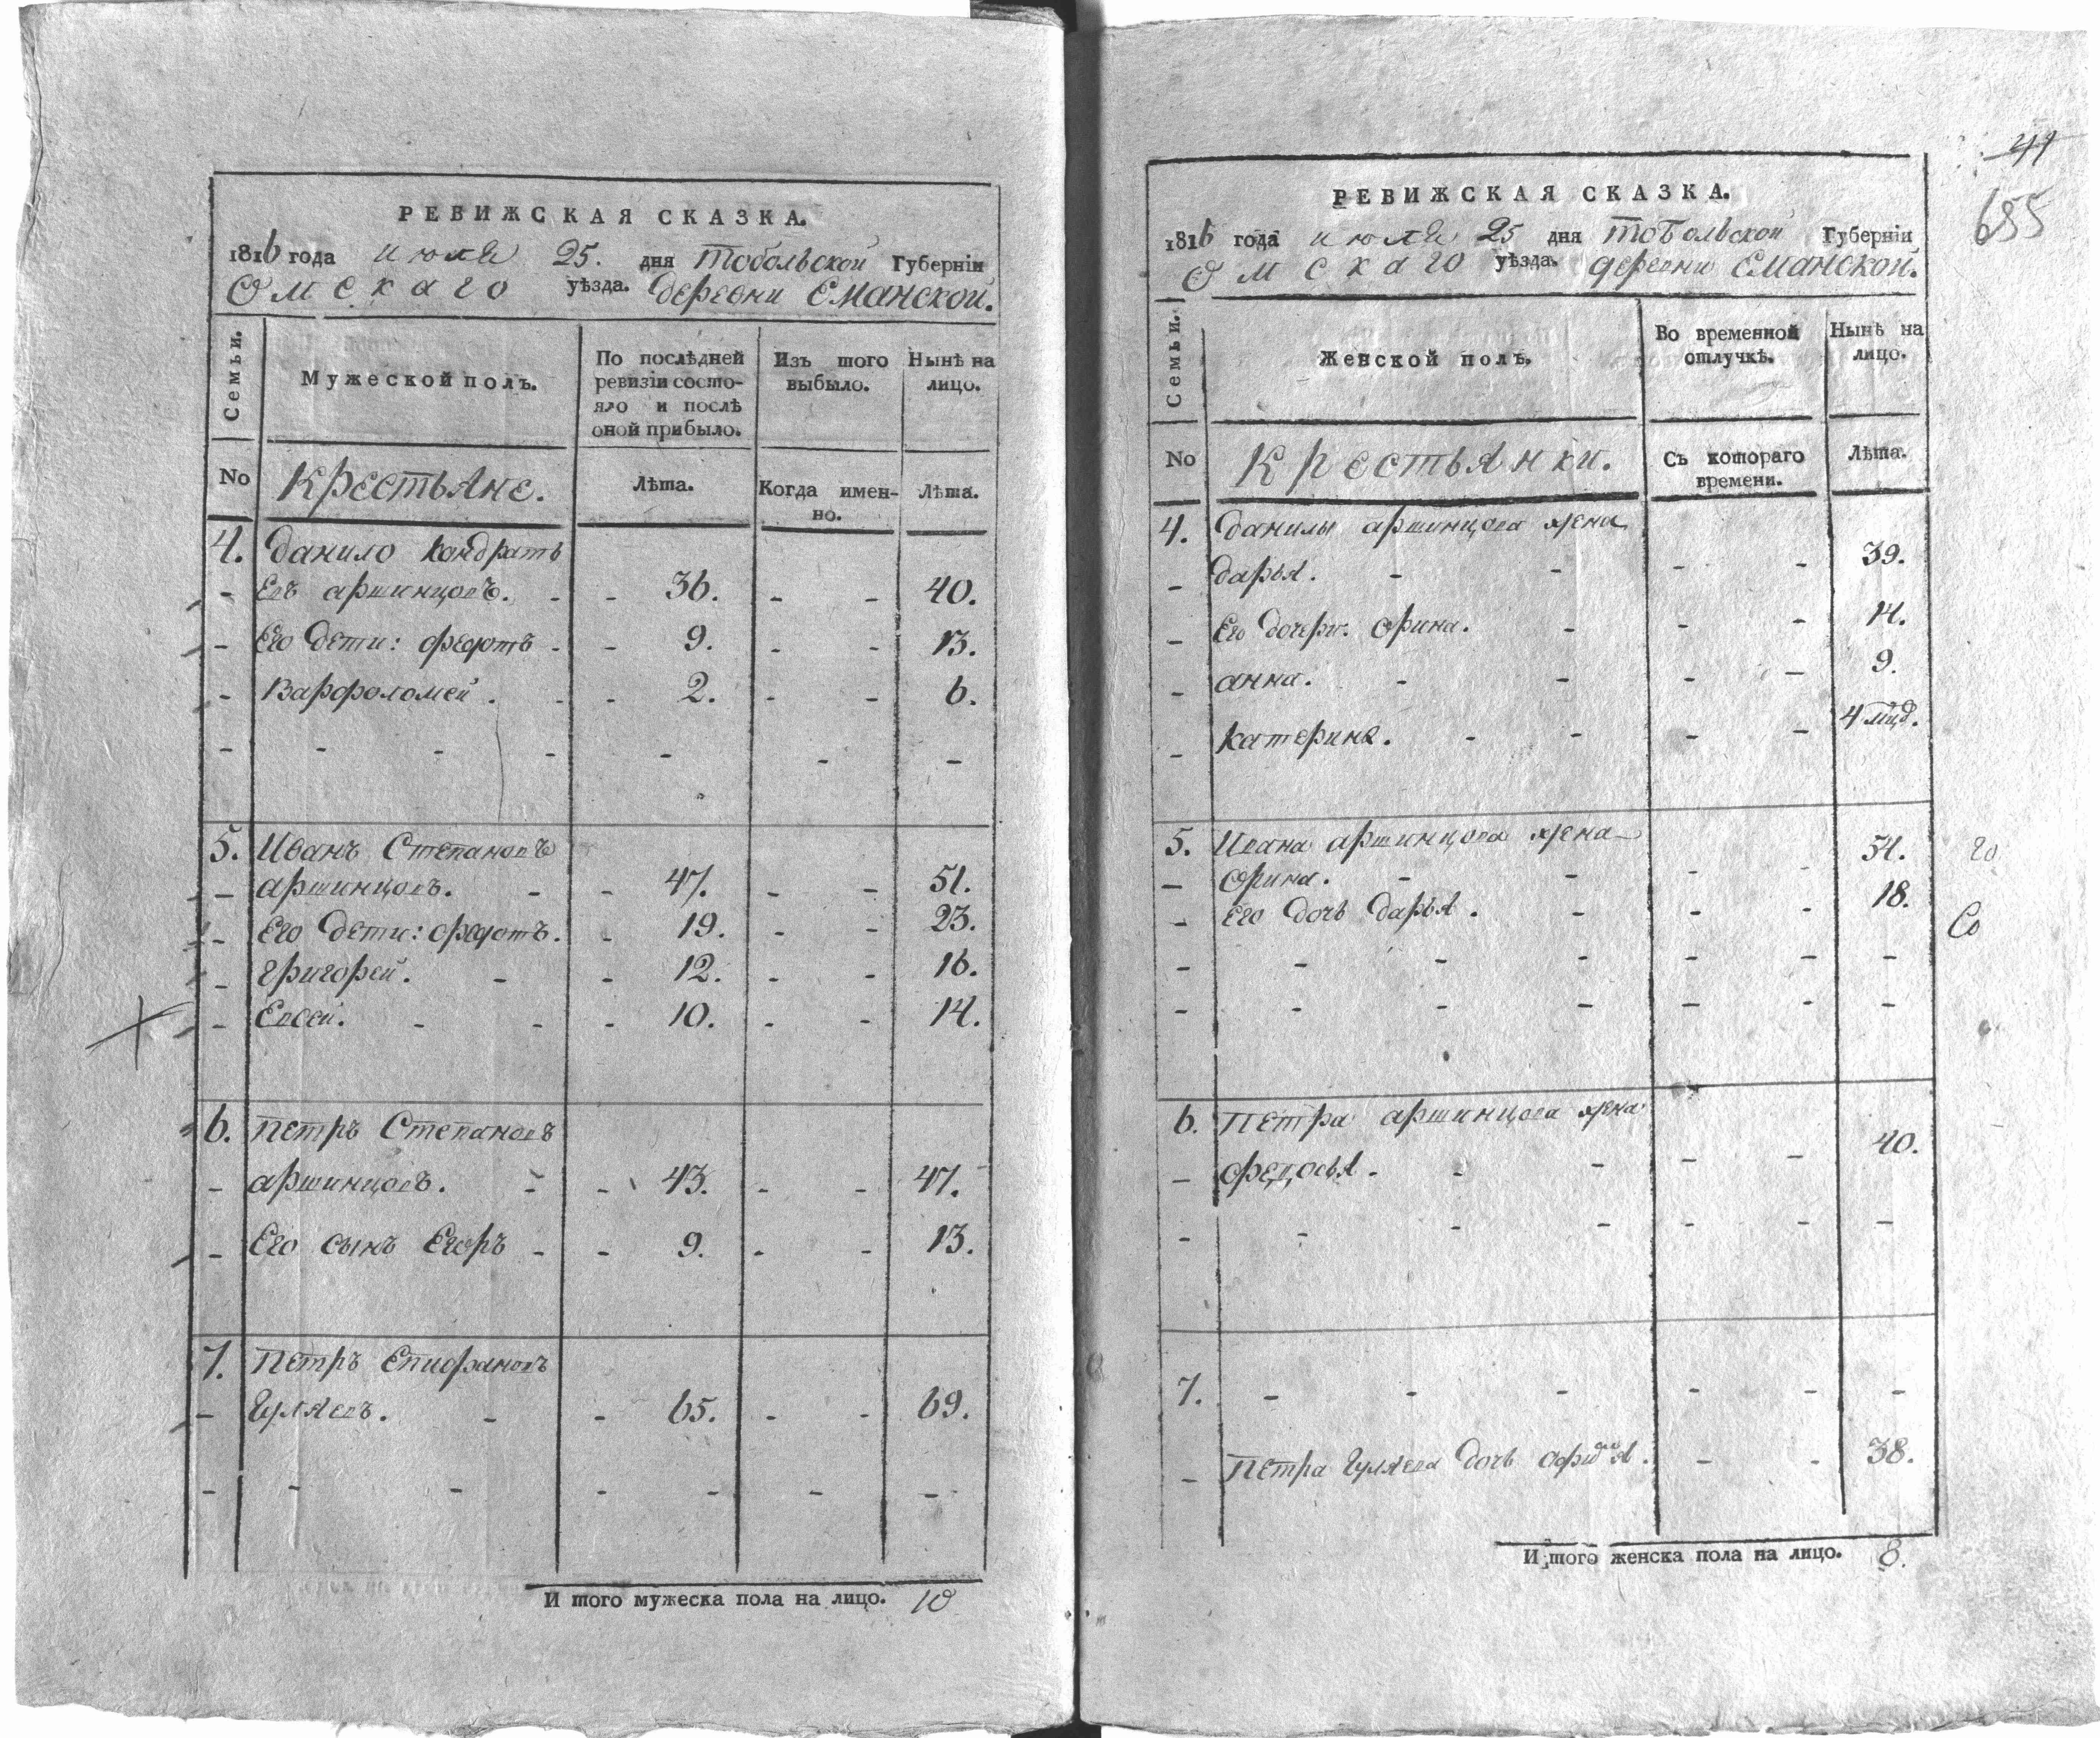 РЕВИЖСКАЯ СКАЗКА.
1816 года июля 25. дня Тобольской Губернїи
Омскаго уѣзда. деревни Еманской.
Семьи.
Мужеской полъ.
По послѣдней
ревизїи состо-
яло и послѣ
оной прибыло.
Изъ того
выбыло.
Нынѣ на
лицо.
No
Крестьяне.
Лѣта.
Когда имен-
но.
Лѣта.
4. Данило Кондрать
евъ аршинцовъ. - - 36. - - 40.
- Его дети: Федотъ - - 9. - - 13.
- Варфоломей. - - 2. - - 6.
- - - - - - -
5. Иванъ Степановъ
- аршинцовъ. - - 47. - - 51.
- Его дети: Федотъ. - 19. - - 23.
- Григорей. - - 12. - - 16.
- Евсей. - - - 10. - - 14.
6. Петръ Степановъ
- аршинцовъ. - - 43. - - 47.
- Его сынъ Егоръ - - 9. - - 13.
7. Петръ Епифановъ
- Гуляевъ. - - 65. - - 69.
- - - - - - -
И того мужеска пола на лицо. 10
41
655
РЕВИЖСКАЯ СКАЗКА.
1816 года июля 25 дня Тобольской Губернїи
Омскаго уѣзда. деревни Еманской.
Семьи.
Женской полъ.
Во временной
отлучкѣ.
Нынѣ на
лицо.
No
Крестьянки.
Съ котораго
времени.
Лѣта.
4. Данилы аршинцова жена
- дарья. - - - - 39.
- Его дочери. Орина. - - - 14.
- анна. - - - - 9.
- Катерина. - - - - 4 мцд.
5. Ивана аршинцова жена
- Орина. - - - - 54.
- Его дочь дарья. - - - 18.
- - - - - - -
- - - - - - -
6. Петра аршинцова жена
- Федосья. - - - - 40.
- - - - - - -
7. - - - - - -
- Петра Гуляева дочь - - 38.
И того женска пола на лицо. 8.